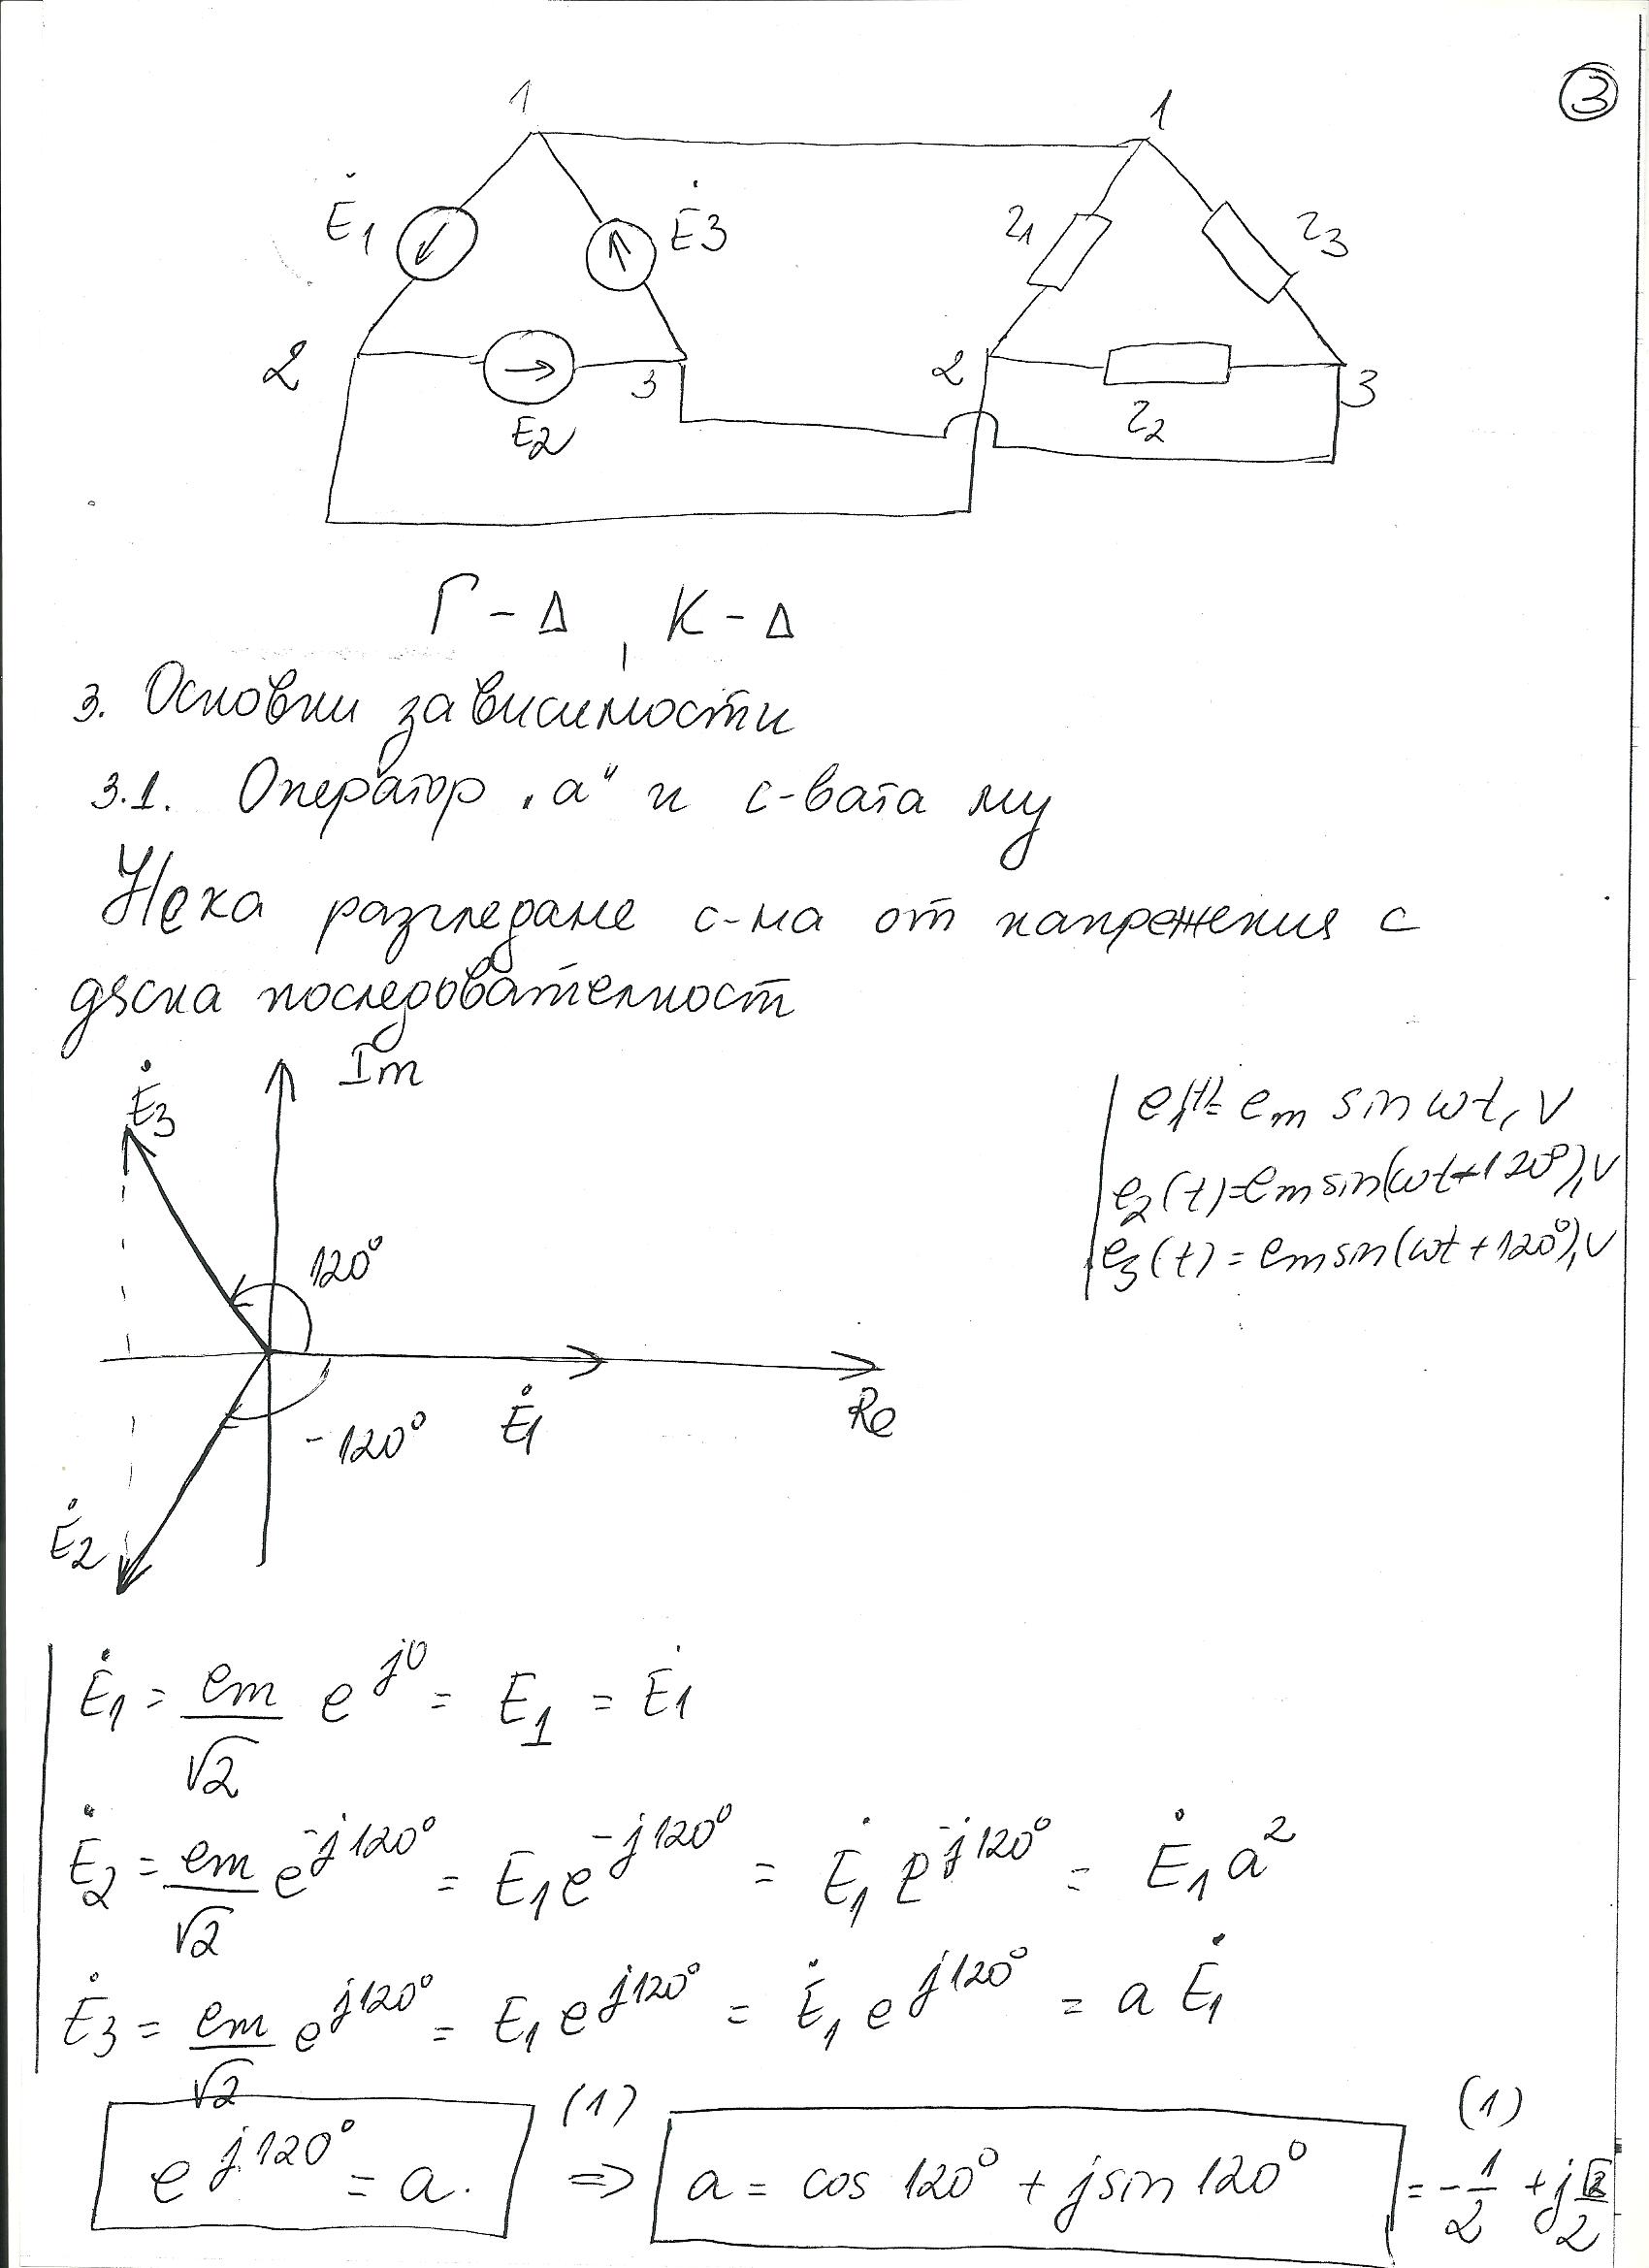 3
1 1
Ė1 Ė3 z1 z3
2 3 2 3
E2 z2
Г - Δ , К - Δ
3. Основни зависимости
3.1. Оператор „a" и с-вата му
Нека разгледаме с-ма от напрежения с
дясна последователност
Ė3 Im
e1(t)= em sin ωt, V
e2(t)=em sin(ωt-120°), V
e3(t) = em sin(ωt +120°), V
120°
Ė1 Re
-120°
Ė2
Ė1 = em/√2 e^j0 = E1 = Ė1
Ė2 = em/√2 e^-j120° = E1 e^-j120° = Ė1 e^-j120° = Ė1 a²
Ė3 = em/√2 e^j120° = E1 e^j120° = Ė1 e^j120° = a Ė1
e^j120° = a. (1) => a = cos 120° + j sin 120° (1) = -1/2 + j